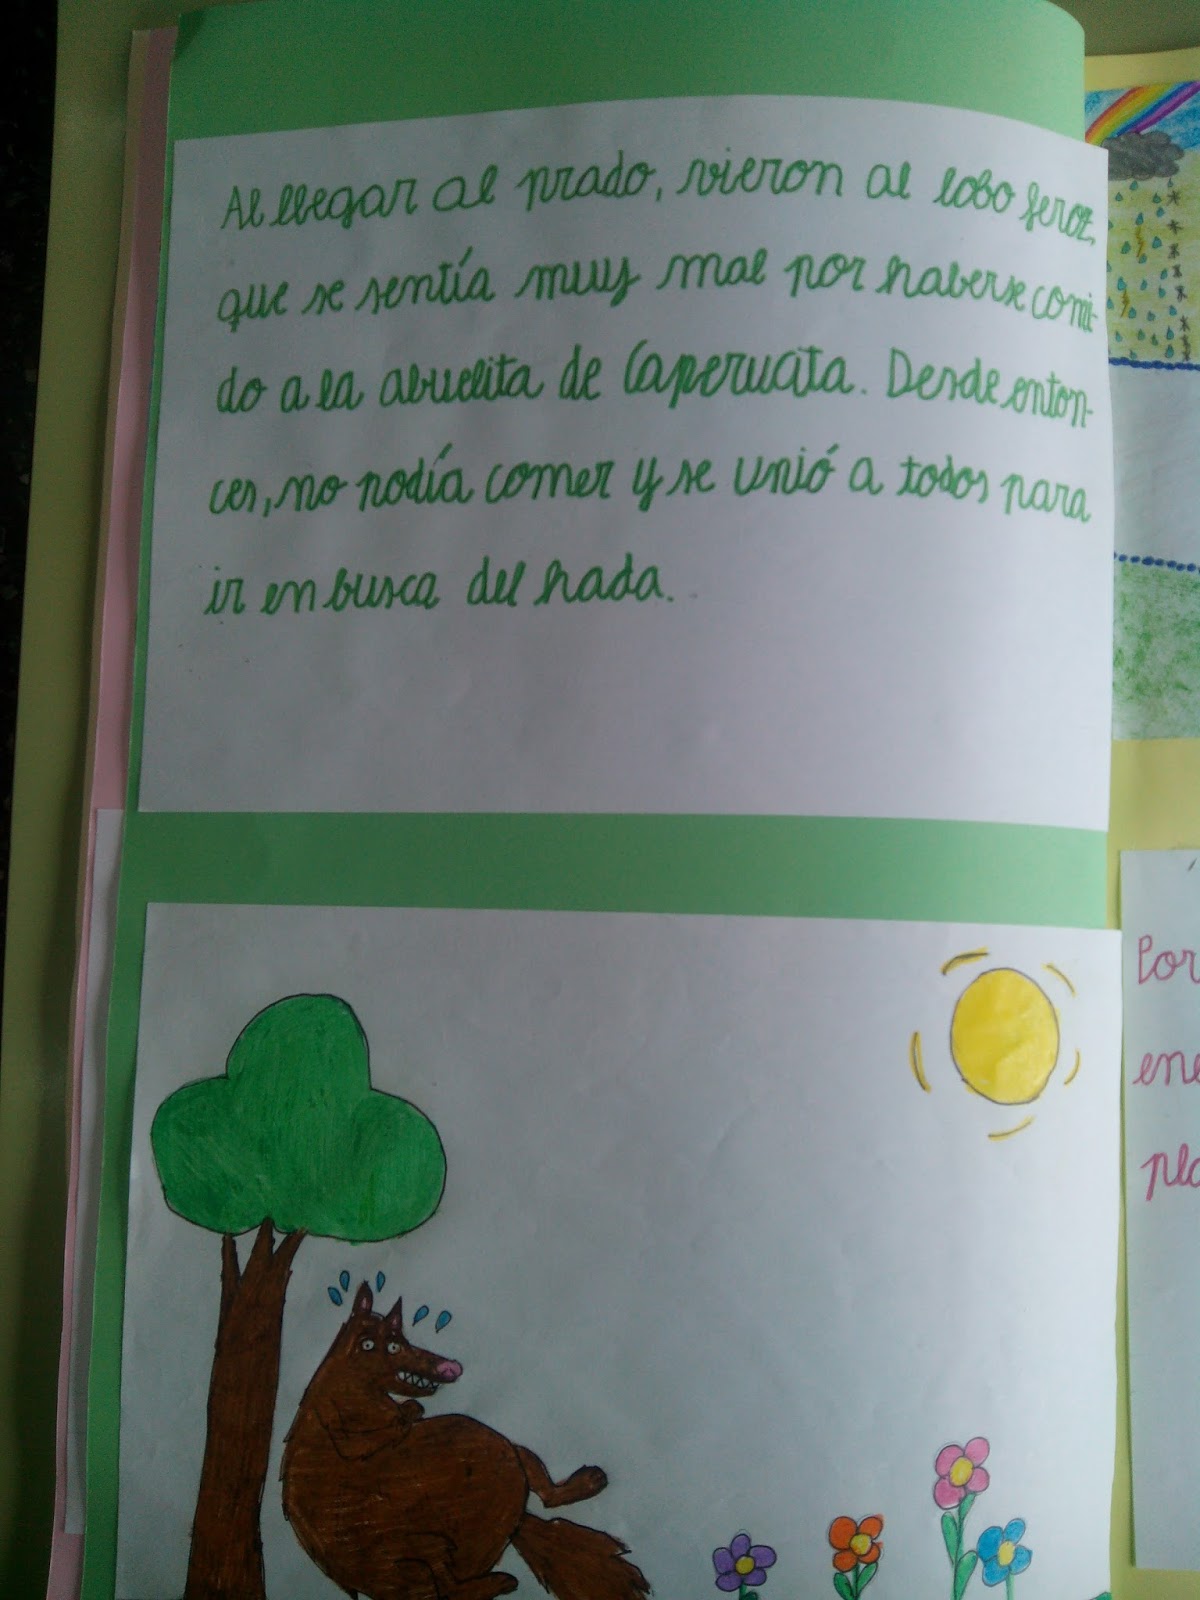 Al llegar al prado, vieron al lobo feroz,
que se sentía muy mal por haberse comi-
do a la abuelita de Caperucita. Desde enton-
ces, no podía comer y se unió a todos para
ir en busca del hada.
Por
ene
pla